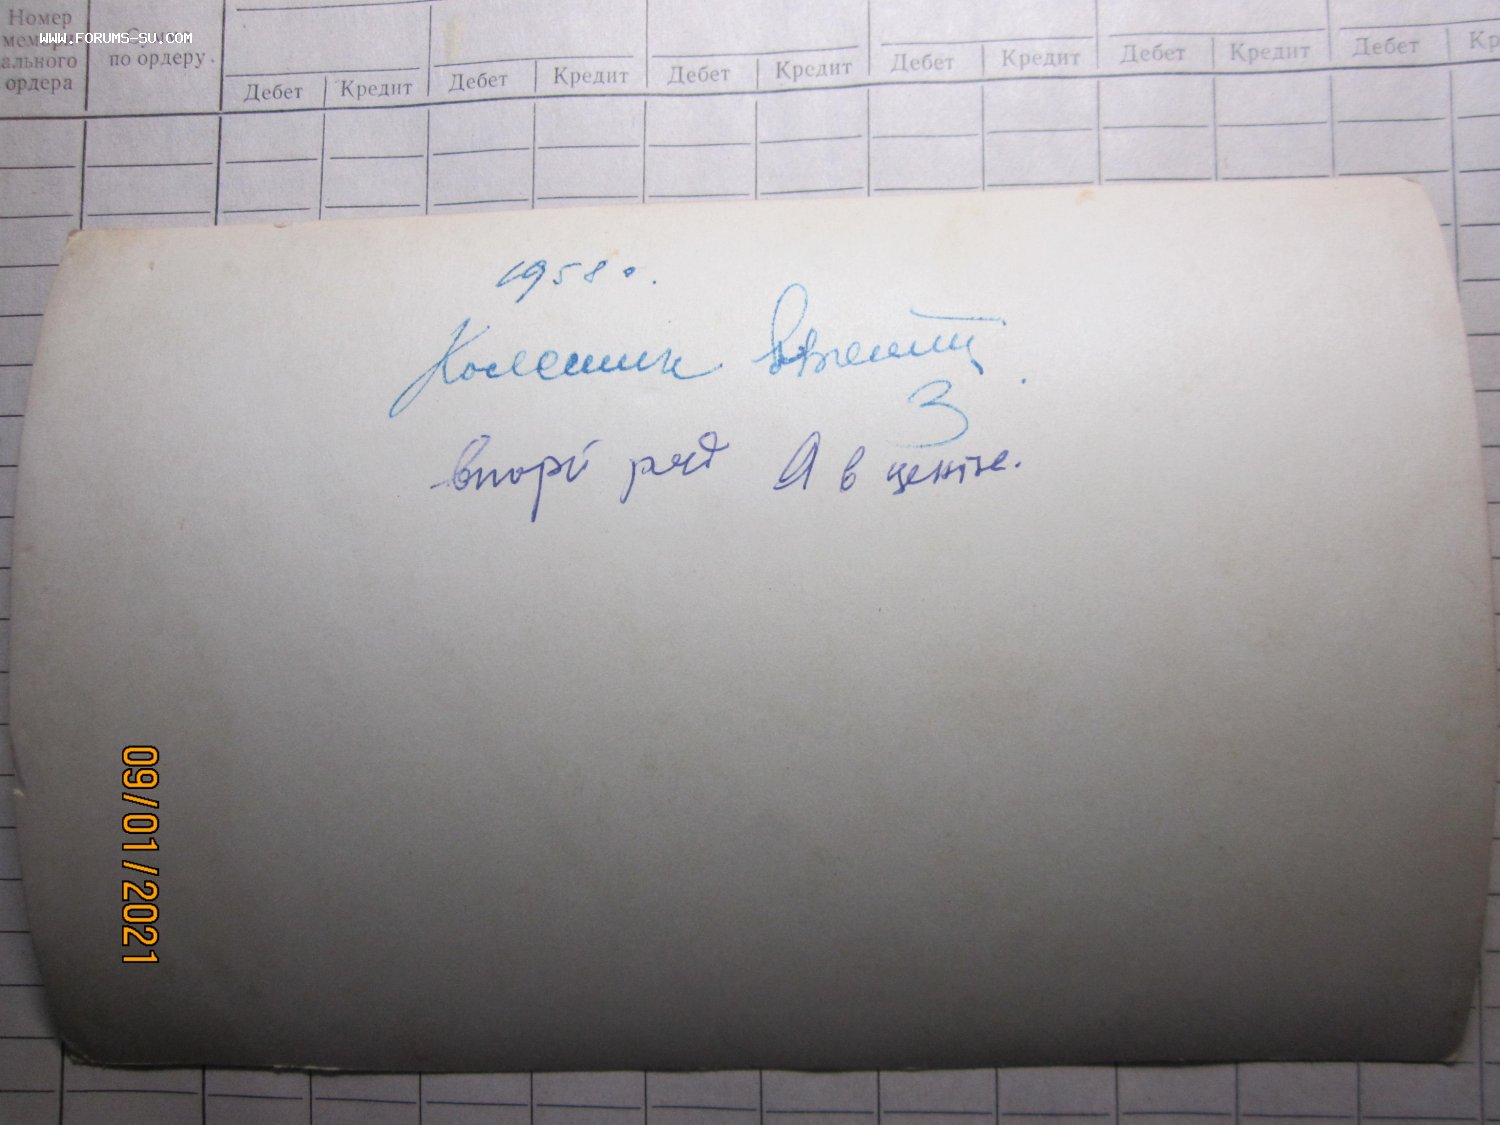 Номер
WWW.FORUMS-SU.COM
ального
ордера
по ордеру.
Дебет Кредит Дебет Кредит Дебет Кредит Дебет Кредит Дебет Кредит Дебет Кр
1958 г.
Колесник
3
ряд Я в центре.
09/01/2021